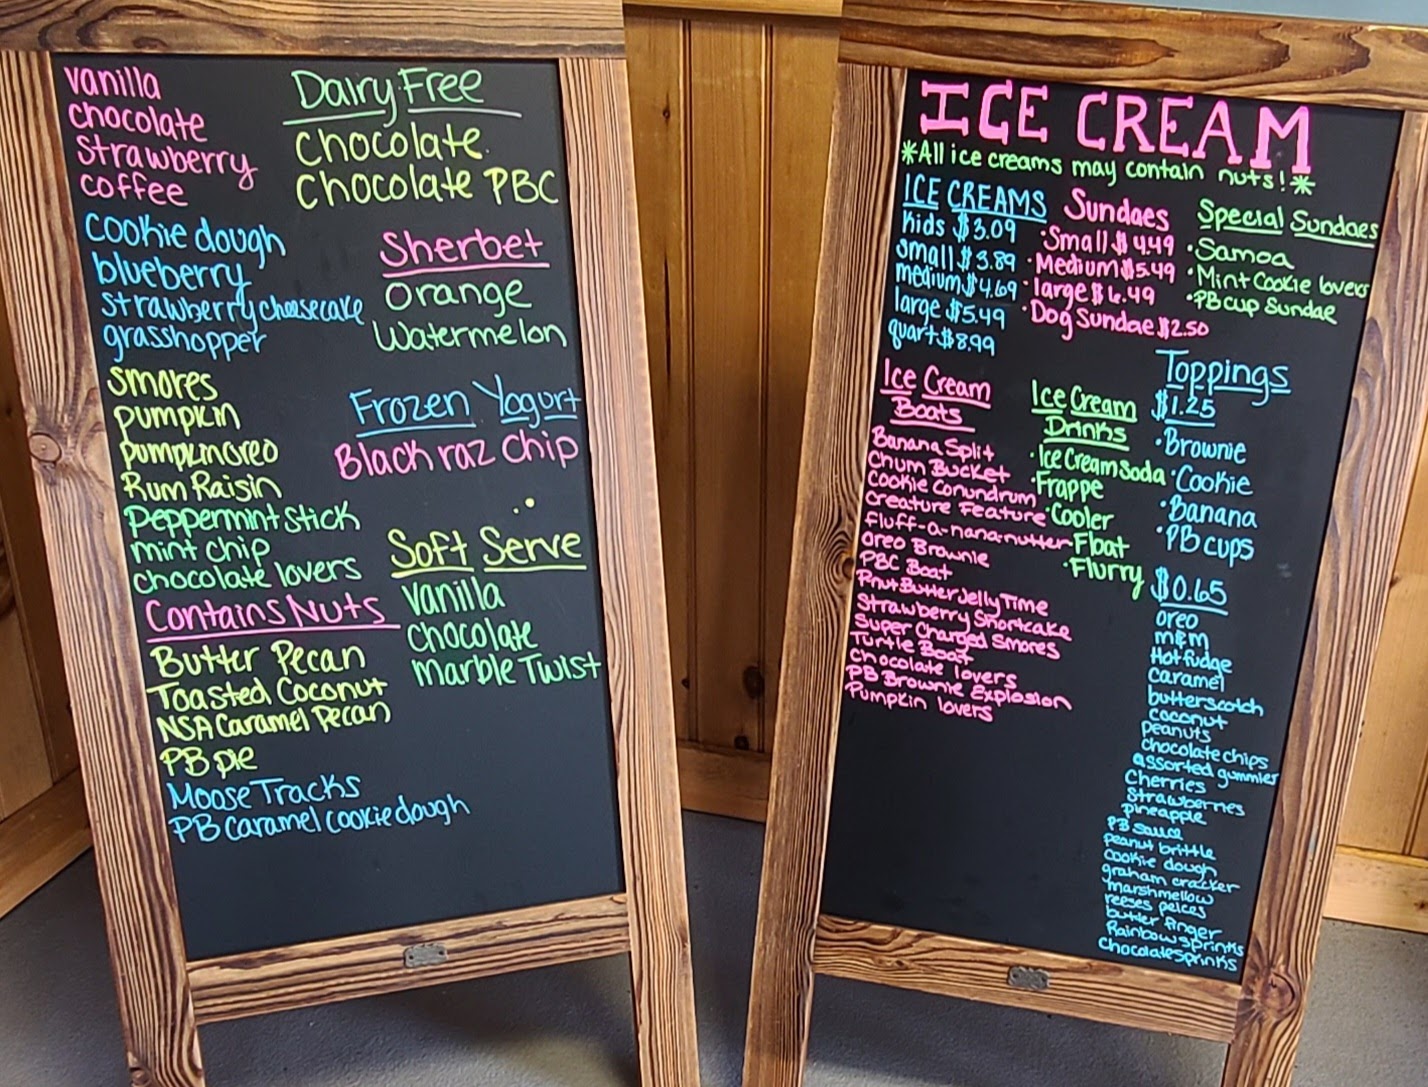 vanilla
chocolate
strawberry
coffee
cookie dough
blueberry
strawberry cheesecake
grasshopper
smores
pumpkin
pumpkin oreo
Rum Raisin
peppermint stick
mint chip
chocolate lovers
Contains Nuts
Butter Pecan
Toasted Coconut
NSA Caramel Pecan
PB pie
Moose Tracks
PB Caramel cookie dough
Dairy Free
Chocolate
Chocolate PBC
Sherbet
Orange
Watermelon
Frozen Yogurt
Black raz Chip
Soft Serve
Vanilla
Chocolate
Marble Twist
ICE CREAM
*All ice creams may contain nuts!*
ICE CREAMS
kids $3.09
small $3.89
medium $4.69
large $5.49
quart $8.99
Sundaes
·Small $4.49
·Medium $5.49
·large $6.49
·Dog Sundae $2.50
Special Sundaes
·Samoa
·Mint Cookie lovers
·PB cup Sundae
Ice Cream
Boats
Banana Split
Chum Bucket
Cookie Conundrum
Creature Feature
fluff-a-nana-nutter
Oreo Brownie
PBC Boat
Pnut Butter Jelly Time
Strawberry Shortcake
Super Charged Smores
Turtle Boat
Chocolate lovers
PB Brownie Explosion
Pumpkin lovers
Ice Cream
Drinks
·Ice Cream Soda
·Frappe
·Cooler
·Float
·Flurry
Toppings
$1.25
·Brownie
·Cookie
·Banana
·PB cups
$0.65
oreo
m&m
Hot fudge
caramel
butterscotch
coconut
peanuts
chocolate chips
assorted gummies
Cherries
Strawberries
pineapple
PB sauce
peanut brittle
cookie dough
graham cracker
marshmellow
reeses peices
butter finger
Rainbow sprinks
chocolate sprinks